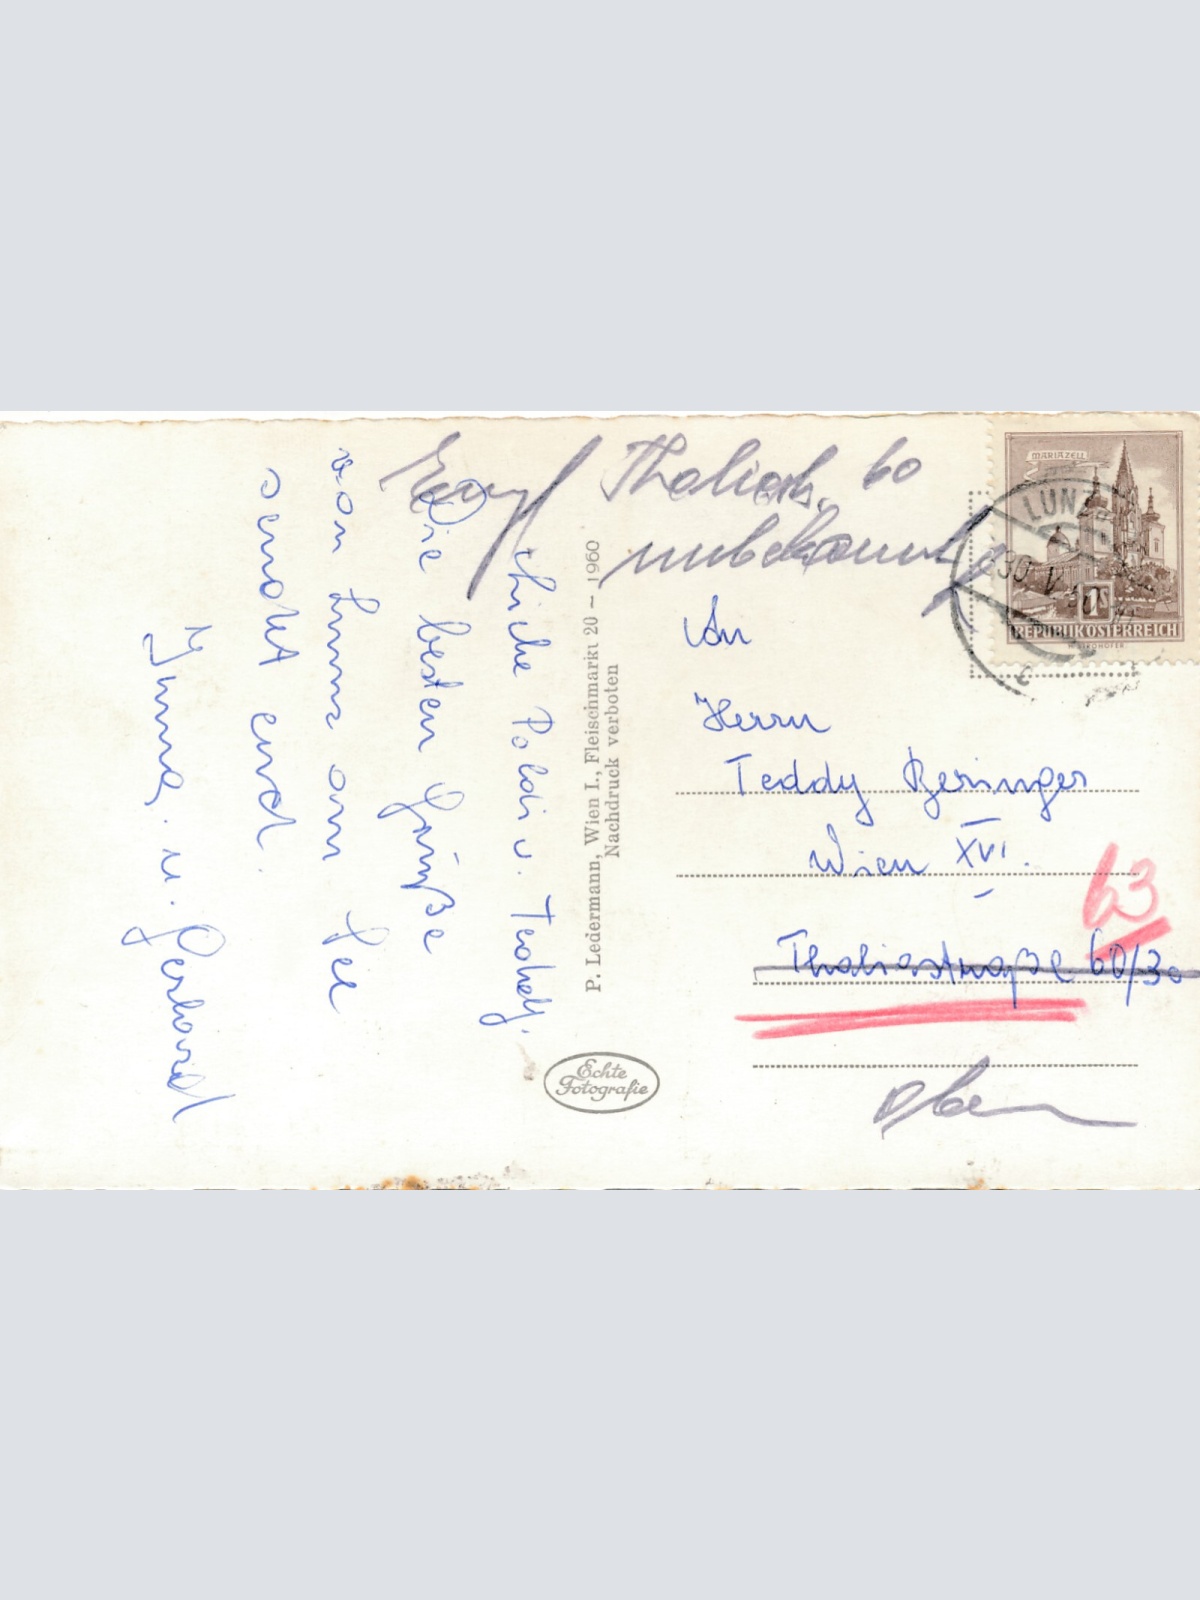 Thaliastr. 60
unbekannt
Liebe Poldi u. Teddy.
Die besten Grüße
von Lunz am See
sendet euch
u. Gerhard
P. Ledermann, Wien I., Fleischmarkt 20 – 1960
Nachdruck verboten
Echte
Fotografie
MARIAZELL
1S
REPUBLIK ÖSTERREICH
LUNZ
30. V.
An
Herrn
Teddy Beringer
Wien XVI.
63
Thaliastraße 60/30